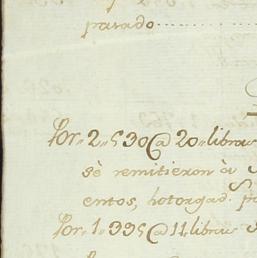 pasado
Por,, 2,,530@ 20,, libras
sè remitieron à
entos, hotorgad. p
Por,, 1,,395@ 11 libras